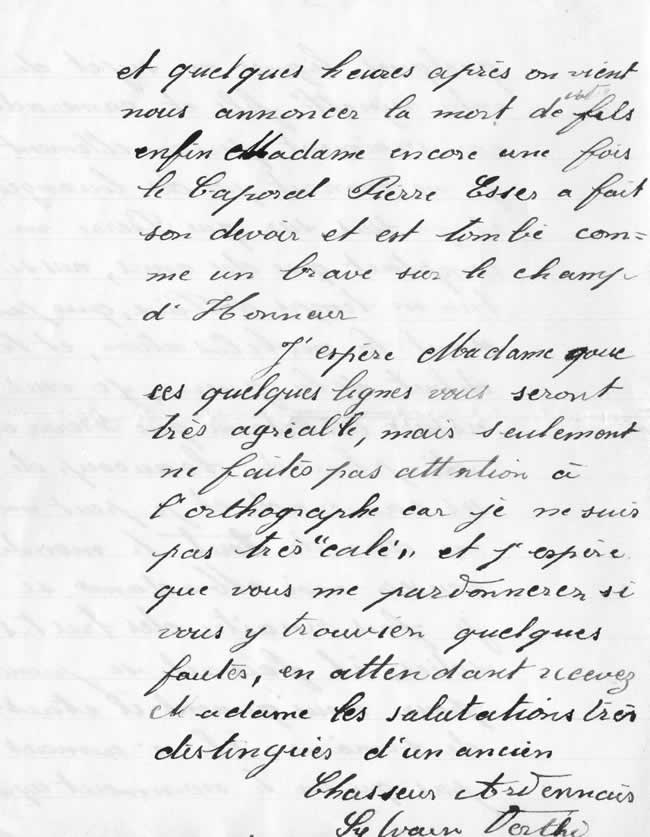 et quelques heures après on vient
nous annoncer la mort de votre fils
enfin Madame encore une fois
le Caporal Pierre Esser a fait
son devoir et est tombé com=
me un brave sur le champ
d'Honneur
J'espère Madame que
ces quelques lignes vous seront
très agréable, mais seulement
ne faites pas attention à
l'orthographe car je ne suis
pas très "calé" et j'espère
que vous me pardonnerez si
vous y trouvien quelques
fautes, en attendant recevez
Madame les salutations très
distingués d'un ancien
Chasseur Ardennais
Sylvain